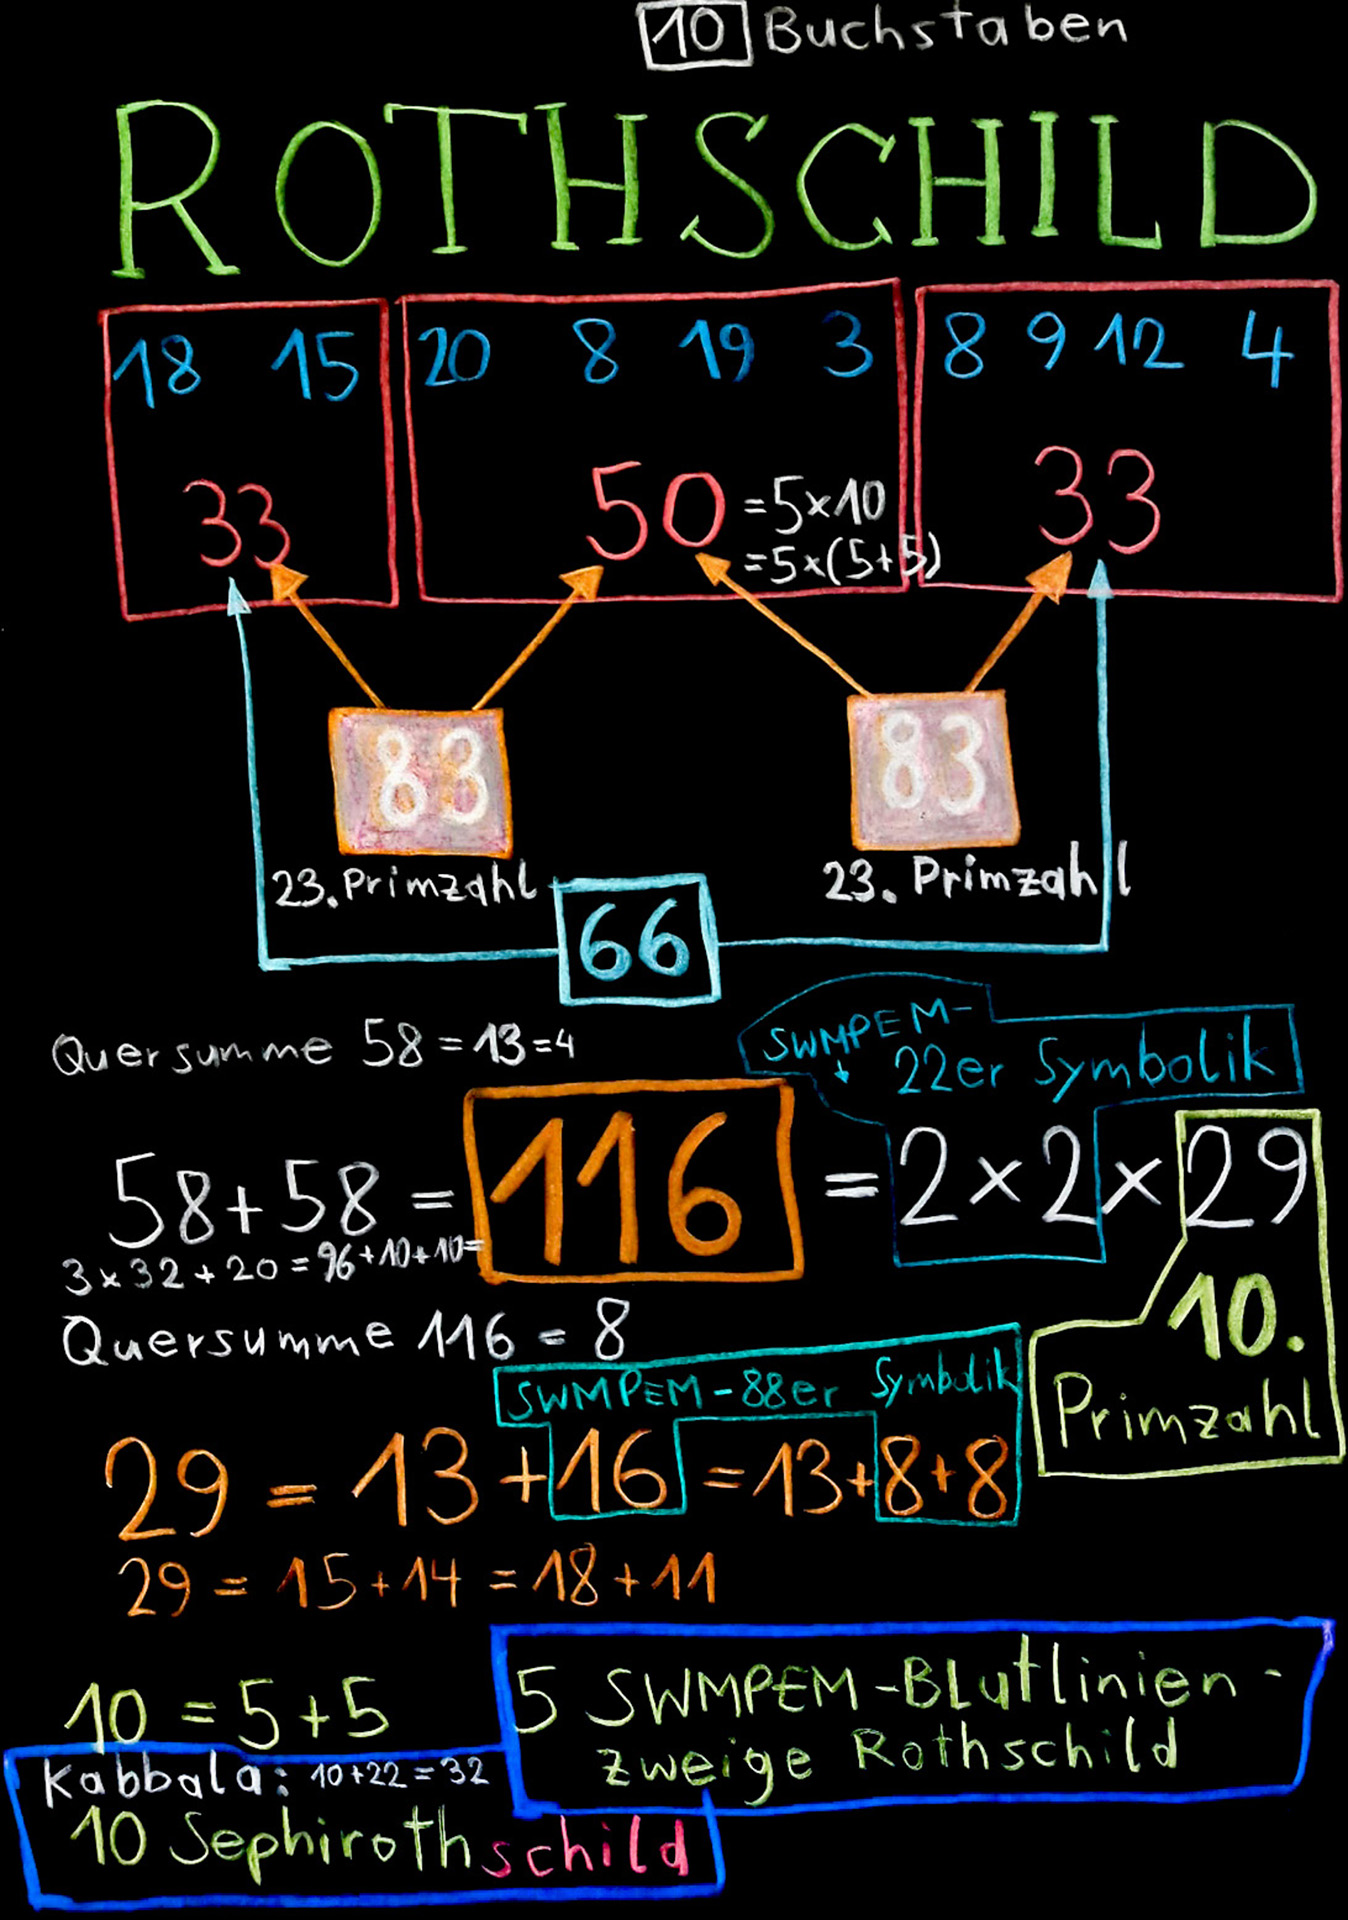 10 Buchstaben
ROTHSCHILD
18 15 20 8 19 3 8 9 12 4
33 50 =5×10 33
=5×(5+5)
83 83
23. Primzahl 23. Primzahl
66
Quersumme 58 = 13 = 4
SWMPEM-
22er Symbolik
58+58 = 116 = 2×2×29
3×32+20 = 96+10+10=
10.
Primzahl
Quersumme 116 = 8
SWMPEM-88er Symbolik
29 = 13+16 = 13+8+8
29 = 15+14 = 18+11
10 = 5+5
5 SWMPEM-Blutlinien-
zweige Rothschild
Kabbala: 10+22=32
10 Sephirothschild